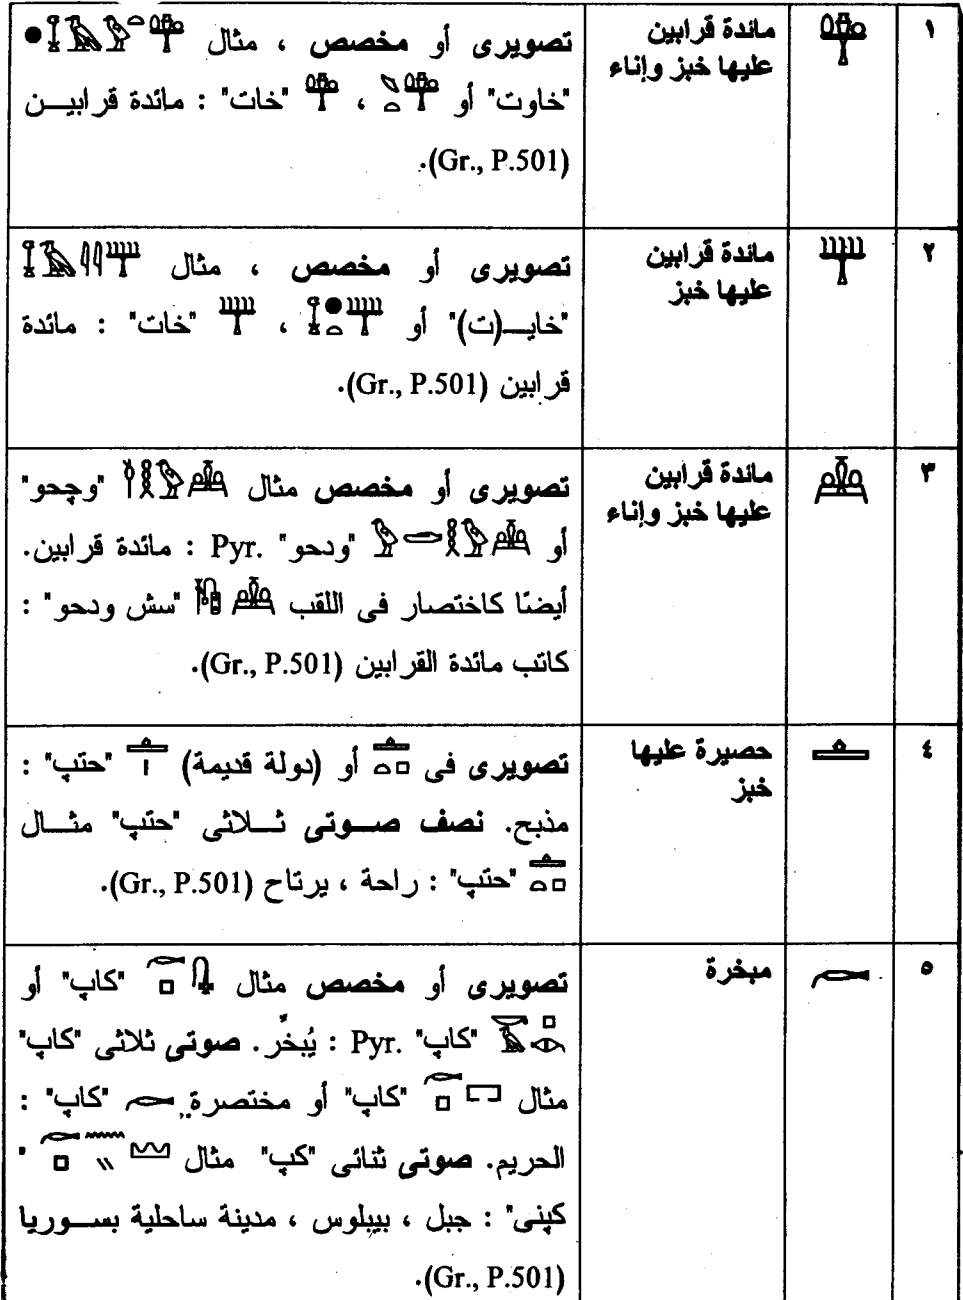 ١
مائدة قرابين
عليها خبز وإناء
تصويرى أو مخصص ، مثال
"خاوت" أو ، "خات" : مائدة قرابيــن
(Gr., P.501).
٢
مائدة قرابين
عليها خبز
تصويرى أو مخصص ، مثال
"خايــ(ت)" أو ، "خات" : مائدة
قرابين (Gr., P.501).
٣
مائدة قرابين
عليها خبز وإناء
تصويرى أو مخصص مثال "وچحو"
أو "ودحو" Pyr. : مائدة قرابين.
أيضًا كاختصار فى اللقب "سش ودحو" :
كاتب مائدة القرابين (Gr., P.501).
٤
حصيرة عليها
خبز
تصويرى فى أو (دولة قديمة) "حتپ" :
مذبح. نصف صــوتى ثــلاثى "حتپ" مثــال
"حتپ" : راحة ، يرتاح (Gr., P.501).
٥
مبخرة
تصويرى أو مخصص مثال "كاپ" أو
"كاپ" Pyr. : يُبخَّر. صوتى ثلاثى "كاپ"
مثال "كاپ" أو مختصرة "كاپ" :
الحريم. صوتى ثنائى "كپ" مثال "
كپنى" : جبل ، بيبلوس ، مدينة ساحلية بســوريا
(Gr., P.501).